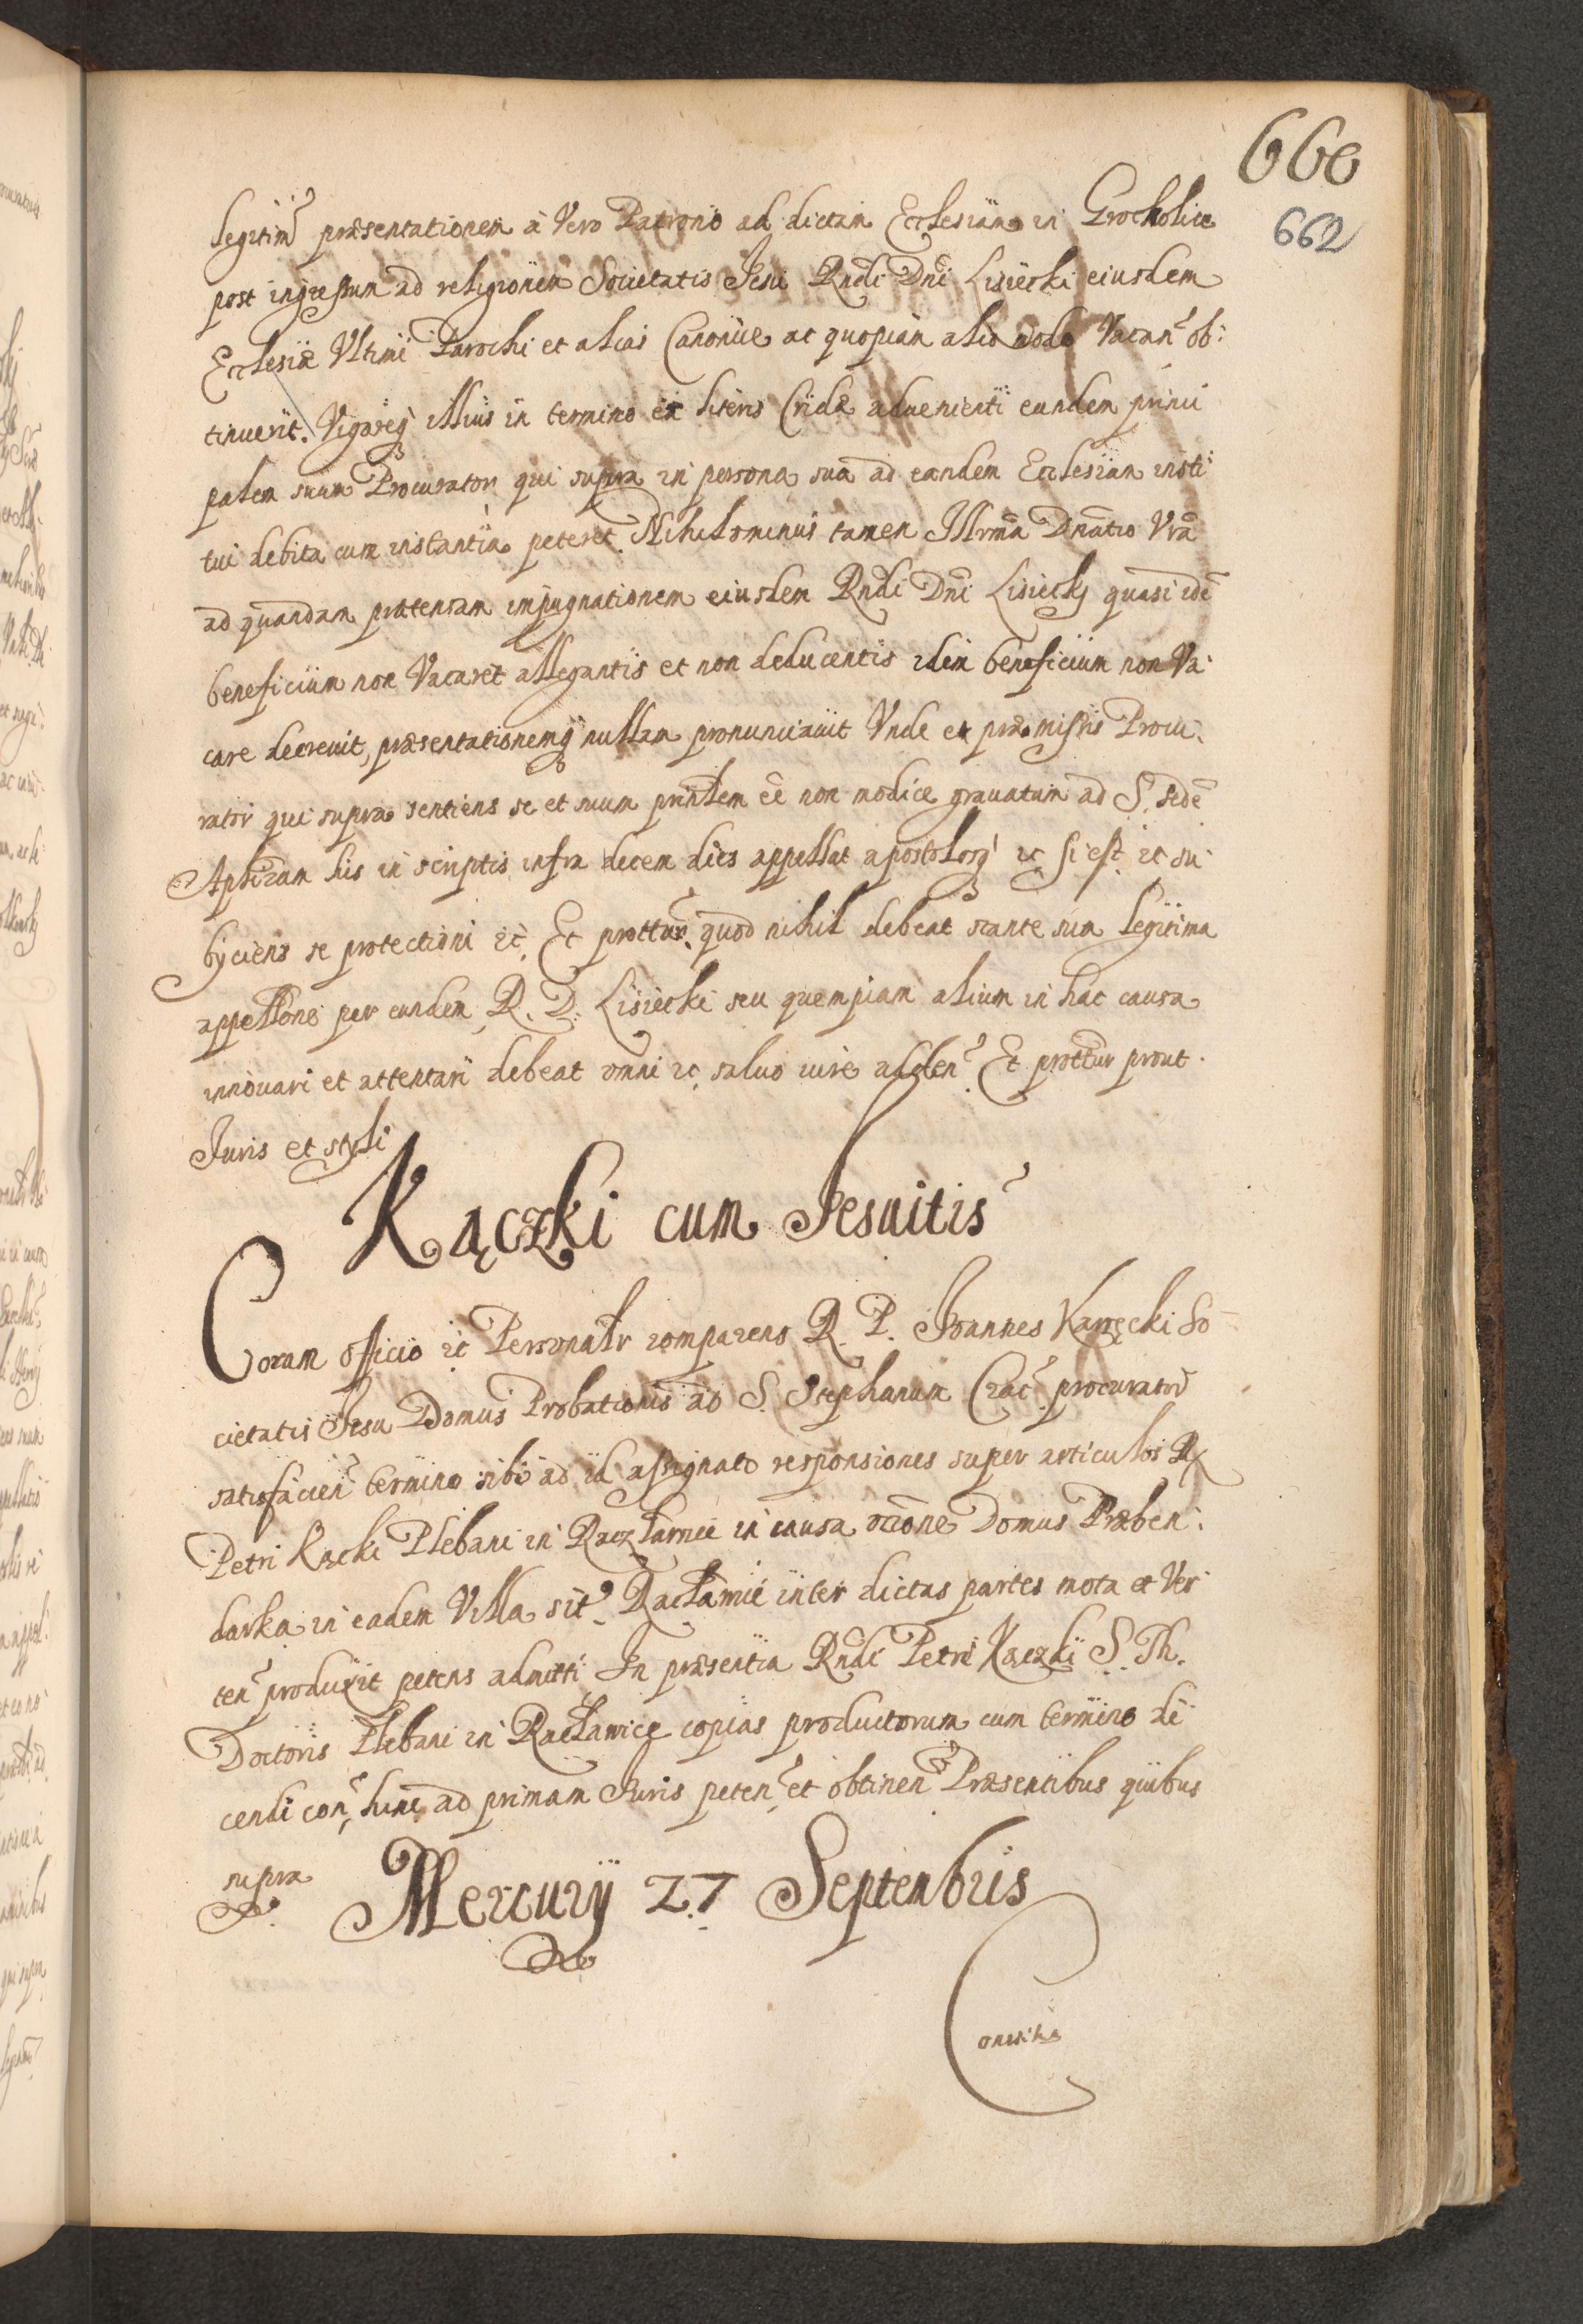 660
662
legitim̃ præsentationem à Vero Patrono ad dictam Ecclesiam in Grocholice
post ingressum ad religionem Societatis Jesu Rndi Dni Lisiecki eiusdem
Ecclesiæ Vltimi Parochi et alias Canonice ac quopiam alio modo Vacan̄ ob:
tinuerit. Vigoreq illius in termino ex literis Cridæ aduenienti eundem princi
palem suum Procurator qui supra in persona sua ad eandem Ecclesiam insti
tui debita cum instantia peteret. Nihilominus tamen Illrma Dnatio Vra
ad quandam prætensam impugnationem eiusdem Rndi Dni Lisiecky quasi idē
beneficium non Vacaret allegantis et non deducentis idem beneficium non Va:
care decreuit, præsentationemq nullam pronunciauit Vnde ex præmissis Procu:
rator qui supra sentiens se et suum prinlem eē non modice grauatum ad S. Sedē
Aplicam his in scriptis infra decem dies appellat apostolosq etc si est etc su
byciens se protectioni etc Et prottur quod nihil debeat stante sua legitima
appellone per eundem R. D. Lisiecki seu quempiam alium in hac causa
innouari et attentari debeat omni etc saluo iure adden̄ Et prottur prout
Juris et styli
Kączki cum Jesuitis
Coram officio etc Personalr comparens R. P. Joannes Karnęcki So
cietatis Jesu Domus Probationis ad S. Stephanum Crac̄ procurator
satisfacien̄ termino sibi ad id assignato responsiones super articulos R
Petri Kącki Plebani in Racławice in causa rõne Domus Præben:
darka in eadem Villa sit Racławice inter dictas partes mota et Ver
ten̄ produxit petens admitti In præsentia Rndi Petri Kączki S. Th.
Doctoris Plebani in Racławice copias productorum cum termino di
cendi con̄ hunc ad primam Juris peten̄ et obtinen̄ Præsentibus quibus
supra
Mercurij 27 Septembris